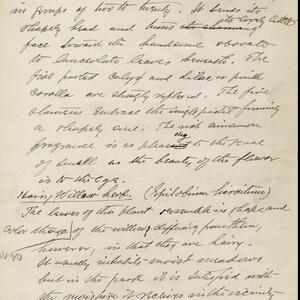 in groups of two to twenty. It bends its
shapely head and turns its lovely
its charming
face toward the handsome obovate
to lanceolate leaves beneath. The
five parted calyx and lilac or pink
corolla are strongly reflexed. The five
stamens embrace the single pistil forming
a shapely cone. The rich cinnamon
fragrance is as pleasing to the sense
of smell as the beauty of the flower
is to the eye.
Hairy Willow herb. (Epilobium hirsutum)
The leaves of this plant resemble in shape and
color those of the willow, differing from them,
however, in that they are hairy.
It usually inhabits moist meadows
but in the park it is satisfied with
the moisture it receives in the vicinity